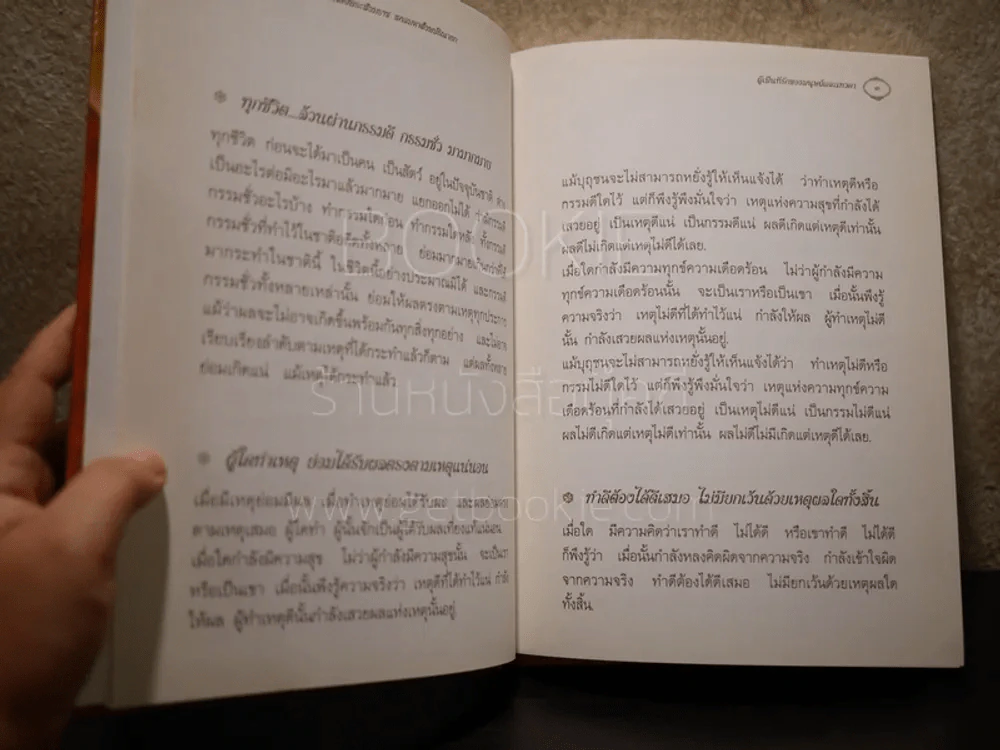 ทุกชีวิต ล้วนผ่านกรรมดี กรรมชั่ว มามากมาย
ทุกชีวิต ก่อนจะได้มาเป็นคน เป็นสัตว์ อยู่ในปัจจุบันชาติ ต่าง
เป็นอะไรต่อมิอะไรมาแล้วมากมาย แยกออกไม่ได้ ว่ามีกรรมดี
กรรมชั่วอะไรบ้าง ทำกรรมใดก่อน ทำกรรมใดหลัง ทั้งกรรมดี
กรรมชั่วที่ทำไว้ในชาติอดีตทั้งหลาย ย่อมมากมายเกินกว่าที่
มากระทำในชาตินี้ ในชีวิตนี้อย่างประมาณมิได้ และกรรมดี
กรรมชั่วทั้งหลายเหล่านั้น ย่อมให้ผลตรงตามเหตุทุกประการ
แม้ว่าผลจะไม่อาจเกิดขึ้นพร้อมกันทุกสิ่งทุกอย่าง และไม่อาจ
เรียบเรียงลำดับตามเหตุที่ได้กระทำแล้วก็ตาม แต่ผลทั้งหลาย
ย่อมเกิดแน่ แม้เหตุได้กระทำแล้ว
ผู้ใดทำเหตุ ย่อมได้รับผลตรงตามเหตุแน่นอน
เมื่อมีเหตุย่อมมีผล เมื่อทำเหตุย่อมได้รับผล และผลย่อม
ตามเหตุเสมอ ผู้ใดทำ ผู้นั้นจักเป็นผู้ได้รับผลเที่ยงแท้แน่นอน
เมื่อใดกำลังมีความสุข ไม่ว่าผู้กำลังมีความสุขนั้น จะเป็นเรา
หรือเป็นเขา เมื่อนั้นพึงรู้ความจริงว่า เหตุดีที่ได้ทำไว้แน่ กำลัง
ให้ผล ผู้ทำเหตุดีนั้นกำลังเสวยผลแห่งเหตุนั้นอยู่
ผู้เป็นที่รักของมนุษย์และเทวดา
แม้บุถุชนจะไม่สามารถหยั่งรู้ให้เห็นแจ้งได้ ว่าทำเหตุดีหรือ
กรรมดีใดไว้ แต่ก็พึงรู้พึงมั่นใจว่า เหตุแห่งความสุขที่กำลังได้
เสวยอยู่ เป็นเหตุดีแน่ เป็นกรรมดีแน่ ผลดีเกิดแต่เหตุดีเท่านั้น
ผลดีไม่เกิดแต่เหตุไม่ดีได้เลย.
เมื่อใดกำลังมีความทุกข์ความเดือดร้อน ไม่ว่าผู้กำลังมีความ
ทุกข์ความเดือดร้อนนั้น จะเป็นเราหรือเป็นเขา เมื่อนั้นพึงรู้
ความจริงว่า เหตุไม่ดีที่ได้ทำไว้แน่ กำลังให้ผล ผู้ทำเหตุไม่ดี
นั้น กำลังเสวยผลแห่งเหตุนั้นอยู่.
แม้บุถุชนจะไม่สามารถหยั่งรู้ให้เห็นแจ้งได้ว่า ทำเหตุไม่ดีหรือ
กรรมไม่ดีใดไว้ แต่ก็พึงรู้พึงมั่นใจว่า เหตุแห่งความทุกข์ความ
เดือดร้อนที่กำลังได้เสวยอยู่ เป็นเหตุไม่ดีแน่ เป็นกรรมไม่ดีแน่
ผลไม่ดีเกิดแต่เหตุไม่ดีเท่านั้น ผลไม่ดีไม่มีเกิดแต่เหตุดีได้เลย.
ทำดีต้องได้ดีเสมอ ไม่มียกเว้นด้วยเหตุผลใดทั้งสิ้น
เมื่อใด มีความคิดว่าเราทำดี ไม่ได้ดี หรือเขาทำดี ไม่ได้ดี
ก็พึงรู้ว่า เมื่อนั้นกำลังหลงคิดผิดจากความจริง กำลังเข้าใจผิด
จากความจริง ทำดีต้องได้ดีเสมอ ไม่มียกเว้นด้วยเหตุผลใด
ทั้งสิ้น.